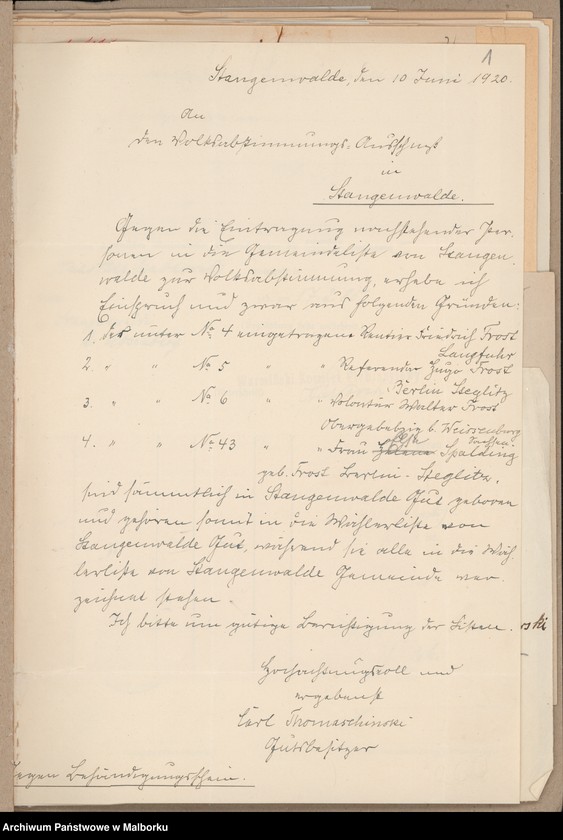 1
Stangenwalde, den 10 Juni 1920.
An
den Volksabstimmungs-Ausschuß
in
Stangenwalde.
Gegen die Eintragung nachstehender Per-
sonen in die Gemeindeliste von Stangen-
walde zur Volksabstimmung, erhebe ich
Einspruch und zwar aus folgenden Gründen:
1. der unter No 4 eingetragene Rentier Friedrich Frost
Langfuhr
2. " " No 5 " " Referendar Hugo Frost
Berlin Steglitz
3. " " No 6 " " Volontär Walter Frost
b. Weissenburg
4. " " No 43 " " Frau Spalding
geb. Frost Berlin-Steglitz,
sind sämmtlich in Stangenwalde Gut geboren
und gehören somit in die Wählerliste von
Stangenwalde Gut, während sie alle in die Wäh-
lerliste von Stangenwalde Gemeinde ver-
zeichnet stehen.
Ich bitte um gütige Berichtigung der Listen.
Hochachtungsvoll und
ergebenst
Carl Thomaschinski
Gutsbesitzer
Gegen Behändigungsschein.
Archiwum Państwowe w Malborku